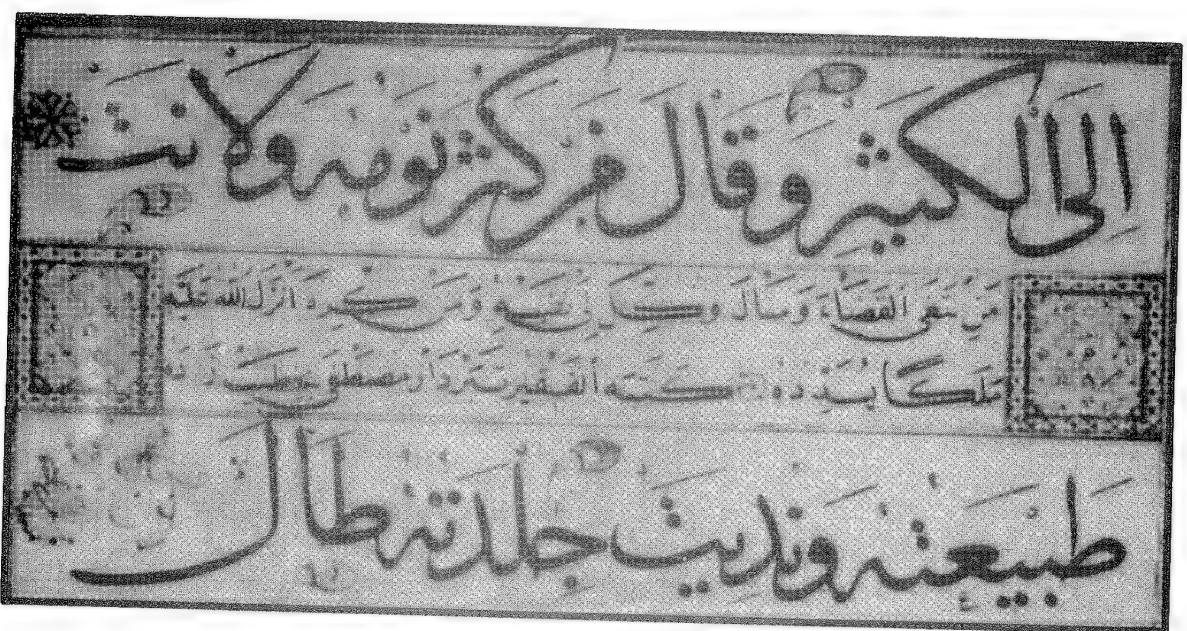 الى الكثير وقال من كثر نومه ولانت
من القضاء وسأل وكل الى نفسه ومن انزل الله عليه
ملكا يسدده كتبه الفقير مصطفى
طبيعته ونديت جلدته طال